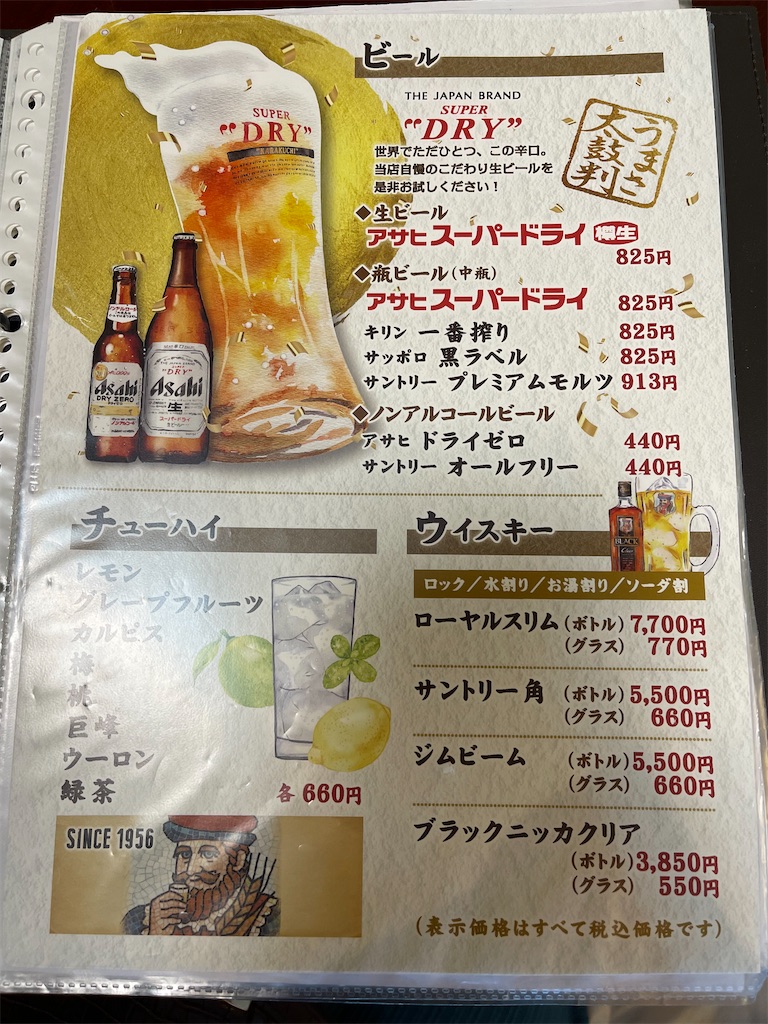 ビール
THE JAPAN BRAND
SUPER
"DRY"
世界でただひとつ、この辛口。
当店自慢のこだわり生ビールを
是非お試しください！
うまさ
太鼓判
SUPER
"DRY"
"KARAKUCHI"
◆生ビール
アサヒスーパードライ 樽生
825円
◆瓶ビール（中瓶）
アサヒスーパードライ 825円
キリン 一番搾り 825円
サッポロ 黒ラベル 825円
サントリー プレミアムモルツ 913円
◆ノンアルコールビール
アサヒ ドライゼロ 440円
サントリー オールフリー 440円
Asahi
DRY ZERO
ノンアルコール
SUPER
"DRY"
Asahi
生
スーパードライ
チューハイ
レモン
グレープフルーツ
カルピス
梅
桃
巨峰
ウーロン
緑茶 各 660円
SINCE 1956
ウイスキー
BLACK
Clear
ロック／水割り／お湯割り／ソーダ割
ローヤルスリム（ボトル）7,700円
（グラス） 770円
サントリー角 （ボトル）5,500円
（グラス） 660円
ジムビーム （ボトル）5,500円
（グラス） 660円
ブラックニッカクリア
（ボトル）3,850円
（グラス） 550円
（表示価格はすべて税込価格です）